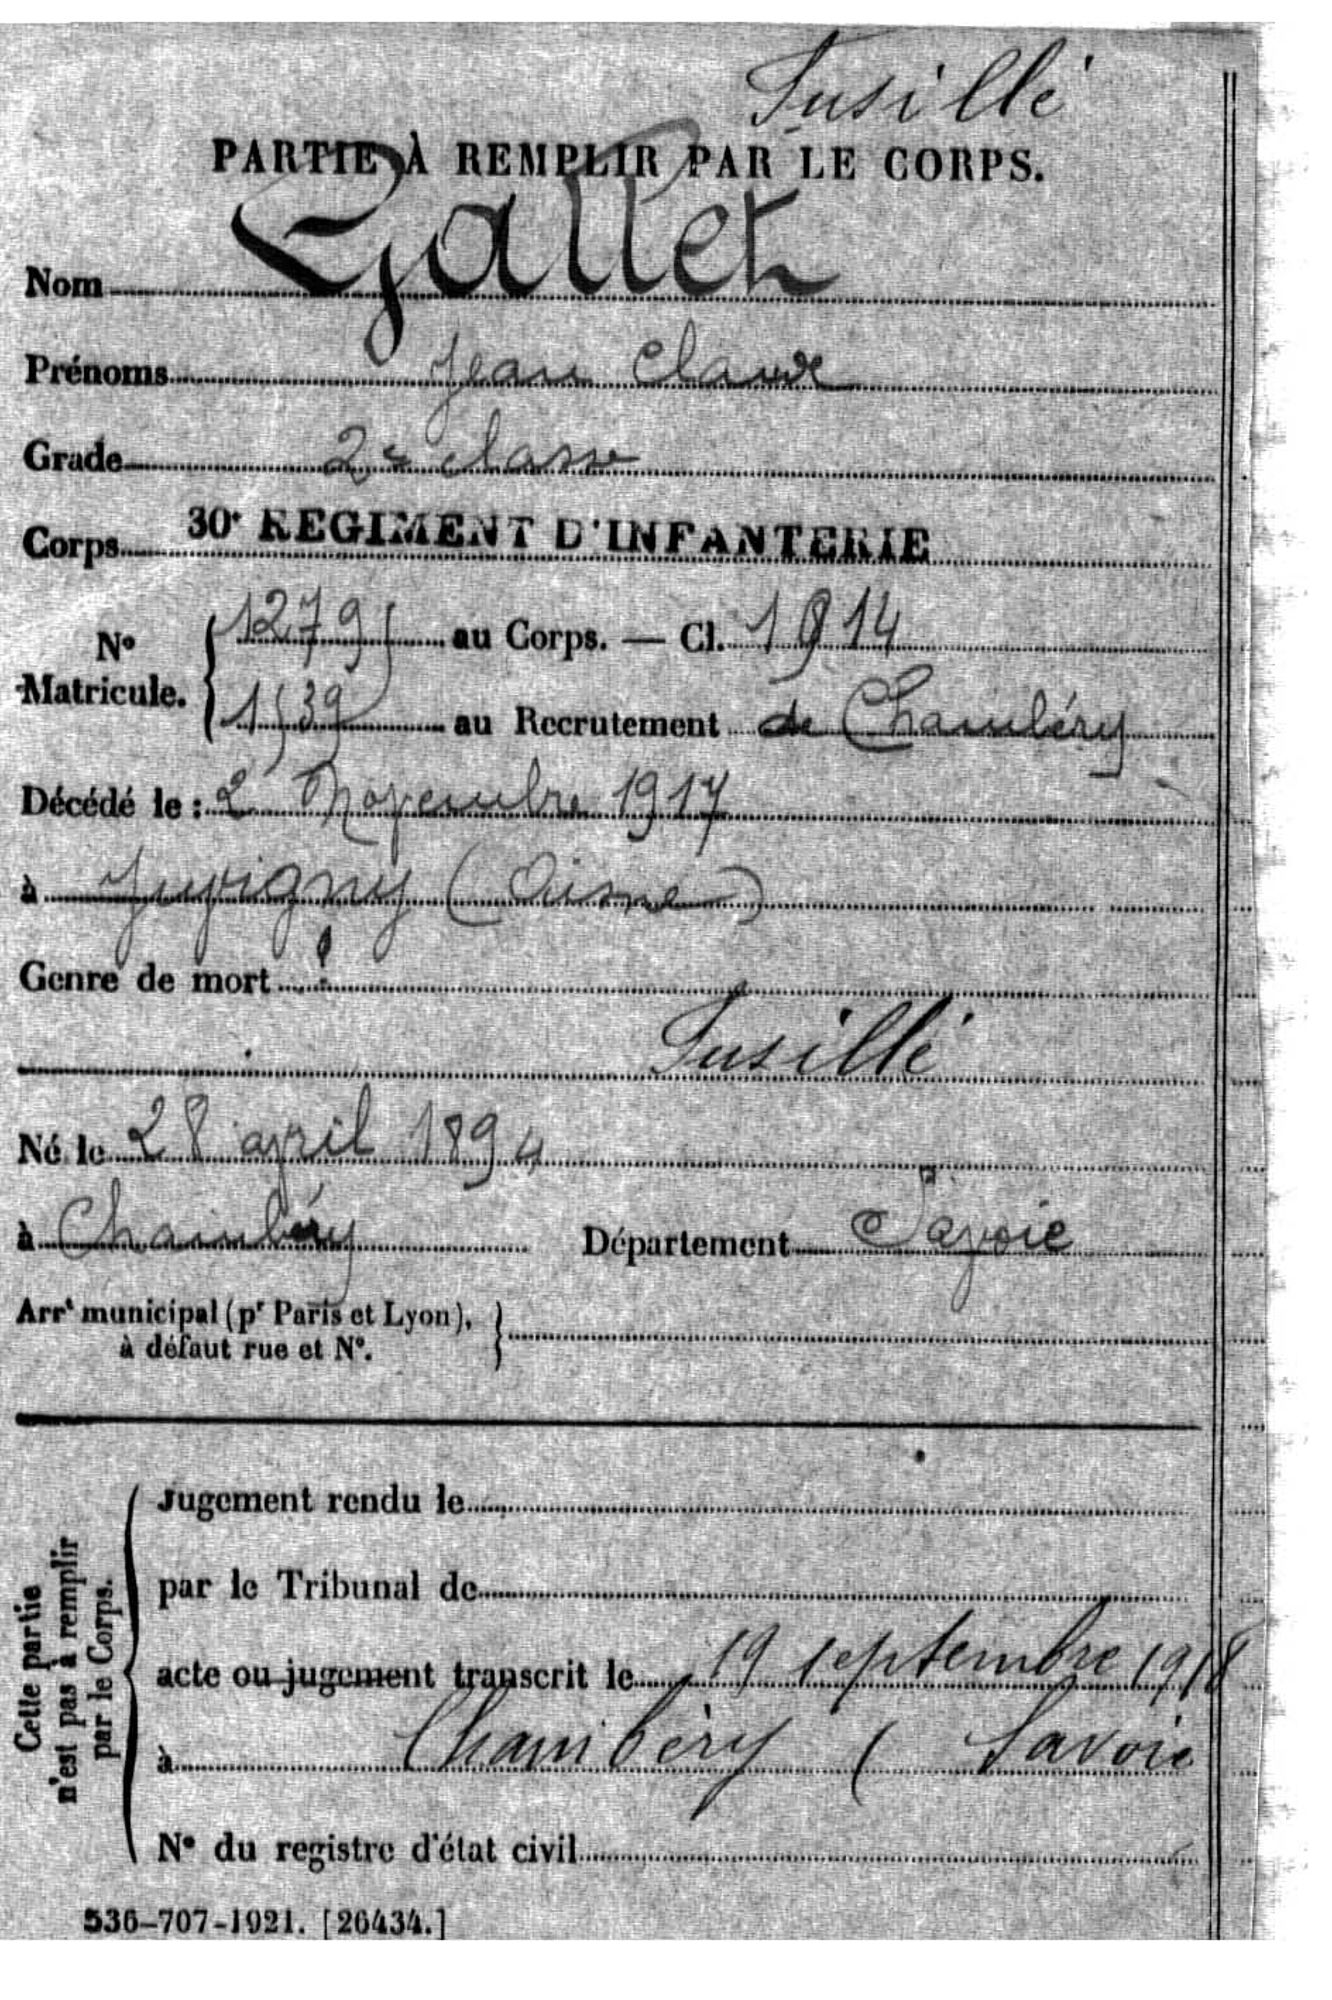 Fusillé
PARTIE À REMPLIR PAR LE CORPS.
Nom Gallet
Prénoms Jean Claude
Grade 2e classe
Corps 30e REGIMENT D'INFANTERIE
No Matricule. { 1279 au Corps. — Cl. 1914
1539 au Recrutement de Chambéry
Décédé le : 2 Novembre 1917
à Juvigny (Aisne)
Genre de mort
Fusillé
Né le 28 avril 1894
à Chambéry Département Savoie
Arrt municipal (pr Paris et Lyon), }
à défaut rue et N°.
Cette partie n'est pas à remplir par le Corps.
Jugement rendu le
par le Tribunal de
acte ou jugement transcrit le 19 septembre 1918
à Chambéry ( Savoie
N° du registre d'état civil
536-707-1921. [26434.]